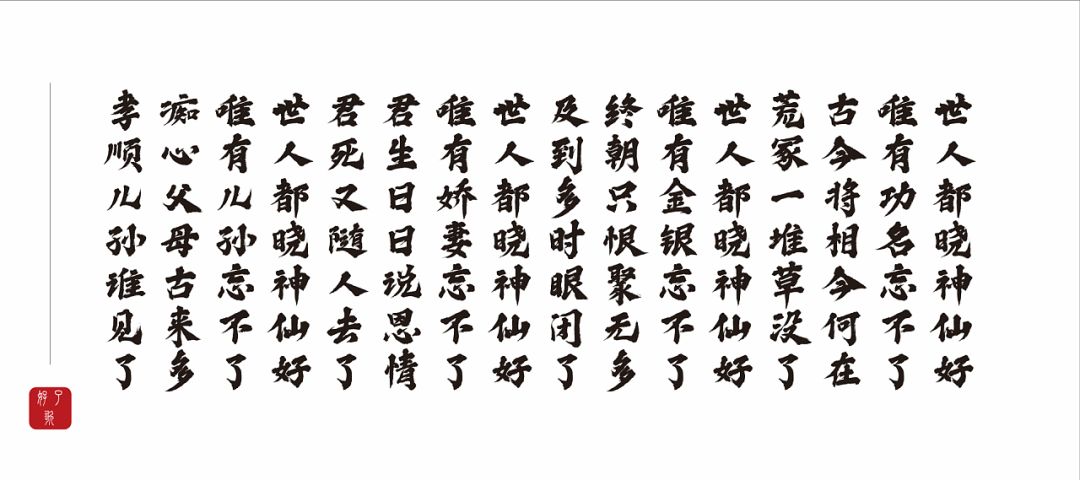 世人都晓神仙好
唯有功名忘不了
古今将相今何在
荒冢一堆草没了
世人都晓神仙好
唯有金银忘不了
终朝只恨聚无多
及到多时眼闭了
世人都晓神仙好
唯有娇妻忘不了
君生日日说恩情
君死又随人去了
世人都晓神仙好
唯有儿孙忘不了
痴心父母古来多
孝顺儿孙谁见了
好了歌